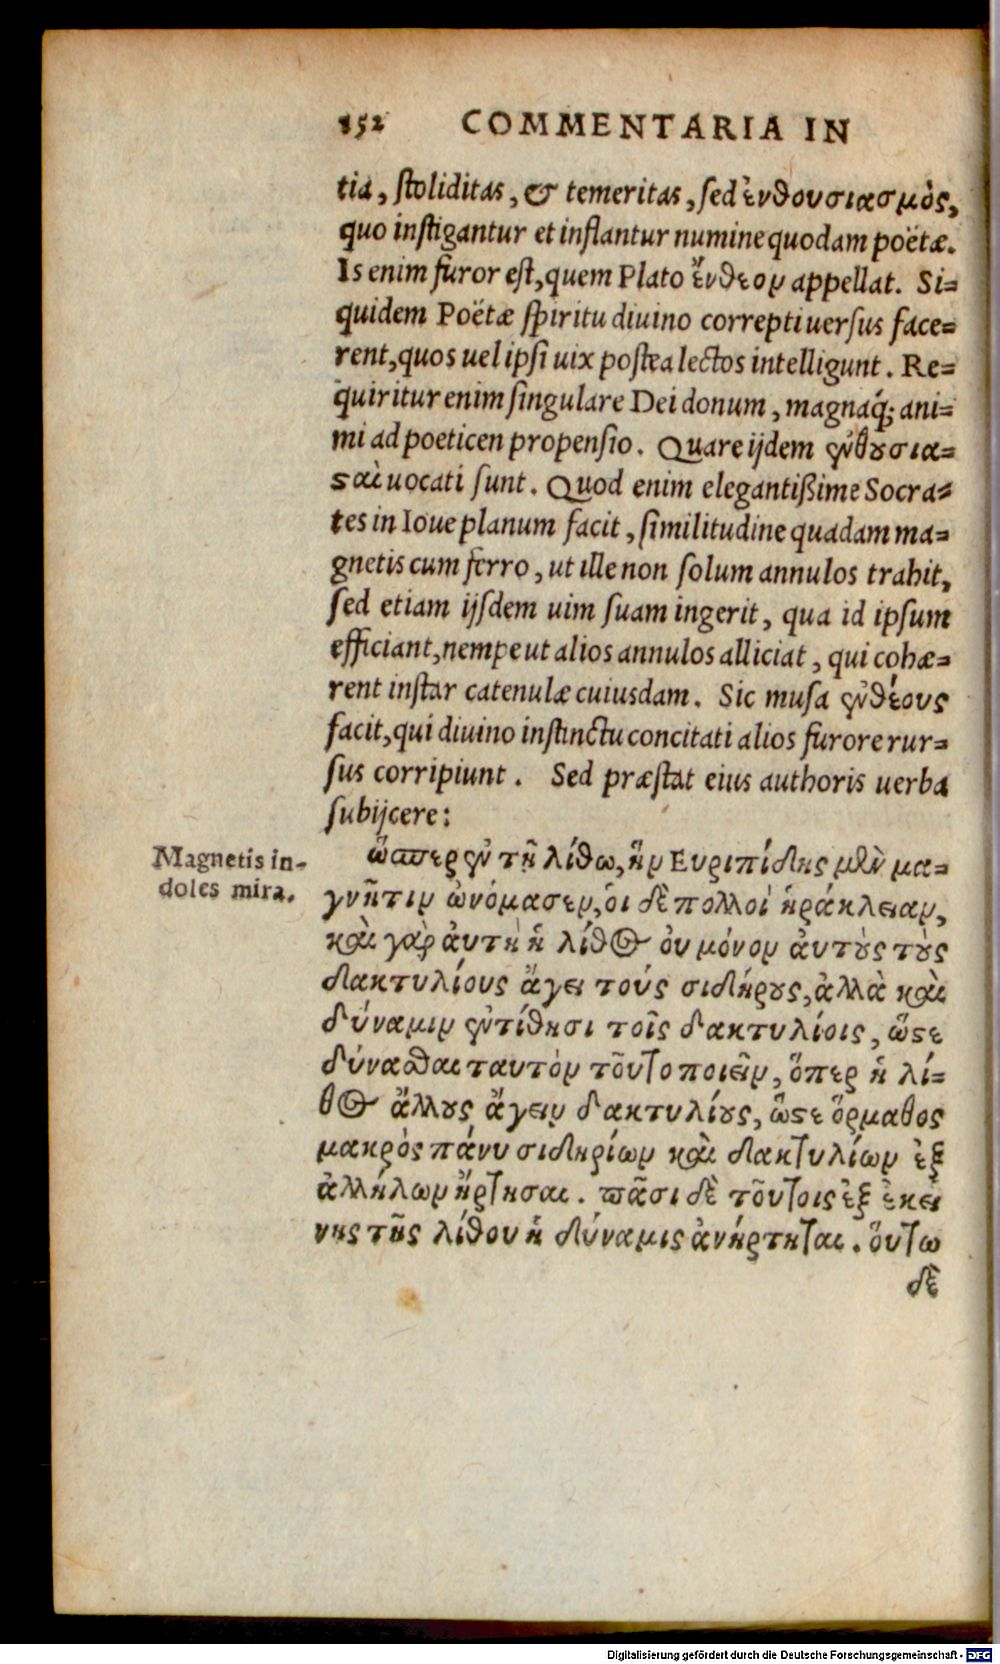 152 COMMENTARIA IN
tia, stoliditas, & temeritas, sed ἐνθουσιασμὸς,
quo instigantur et inflantur numine quodam poëtæ.
Is enim furor est, quem Plato ἔνθεον appellat. Si=
quidem Poëtæ spiritu diuino correpti uersus face=
rent, quos uel ipsi uix postea lectos intelligunt. Re=
quiritur enim singulare Dei donum, magnaq́; ani=
mi ad poeticen propensio. Quare ijdem ἐνθουσια=
ϛαὶ uocati sunt. Quod enim elegantißime Socra=
tes in Ioue planum facit, similitudine quadam ma=
gnetis cum ferro, ut ille non solum annulos trahit,
sed etiam ijsdem uim suam ingerit, qua id ipsum
efficiant, nempe ut alios annulos alliciat, qui cohæ=
rent instar catenulæ cuiusdam. Sic musa ἐνθέους
facit, qui diuino instinctu concitati alios furore rur=
sus corripiunt. Sed præstat eius authoris uerba
subijcere:
Magnetis in-
doles mira.
ὥσπερ ἐν τῆ λίθω, ἣν Ευριπίδης μὲν μα=
γνῆτιν ὠνόμασεν, ὁι δὲ πολλοὶ ἡράκλειαν,
καὶ γὰρ ἀυτὴ ἡ λίθος ὀυ μόνον ἀυτοὺς τοὺς
δακτυλίους ἄγει τούς σιδήρους, ἀλλὰ καὶ
δύναμιν ἐντίθησι τοῖς δακτυλίοις, ὥϛε
δύναϑαι ταυτὸν τοῦτο ποιεῖν, ὅπερ ἡ λί=
θος ἄλλους ἄγειν δακτυλίους, ὥϛε ὅρμαθος
μακρὸς πάνυ σιδηρίων καὶ δακτυλίων ἐξ
ἀλλήλων ἤρτησαι. πᾶσι δὲ τοῦτοις ἐξ ἐκεί
νης τῆς λίθου ἡ δύναμις ἀνήρτηται. ὅυτω
δὲ
Digitalisierung gefördert durch die Deutsche Forschungsgemeinschaft - DFG